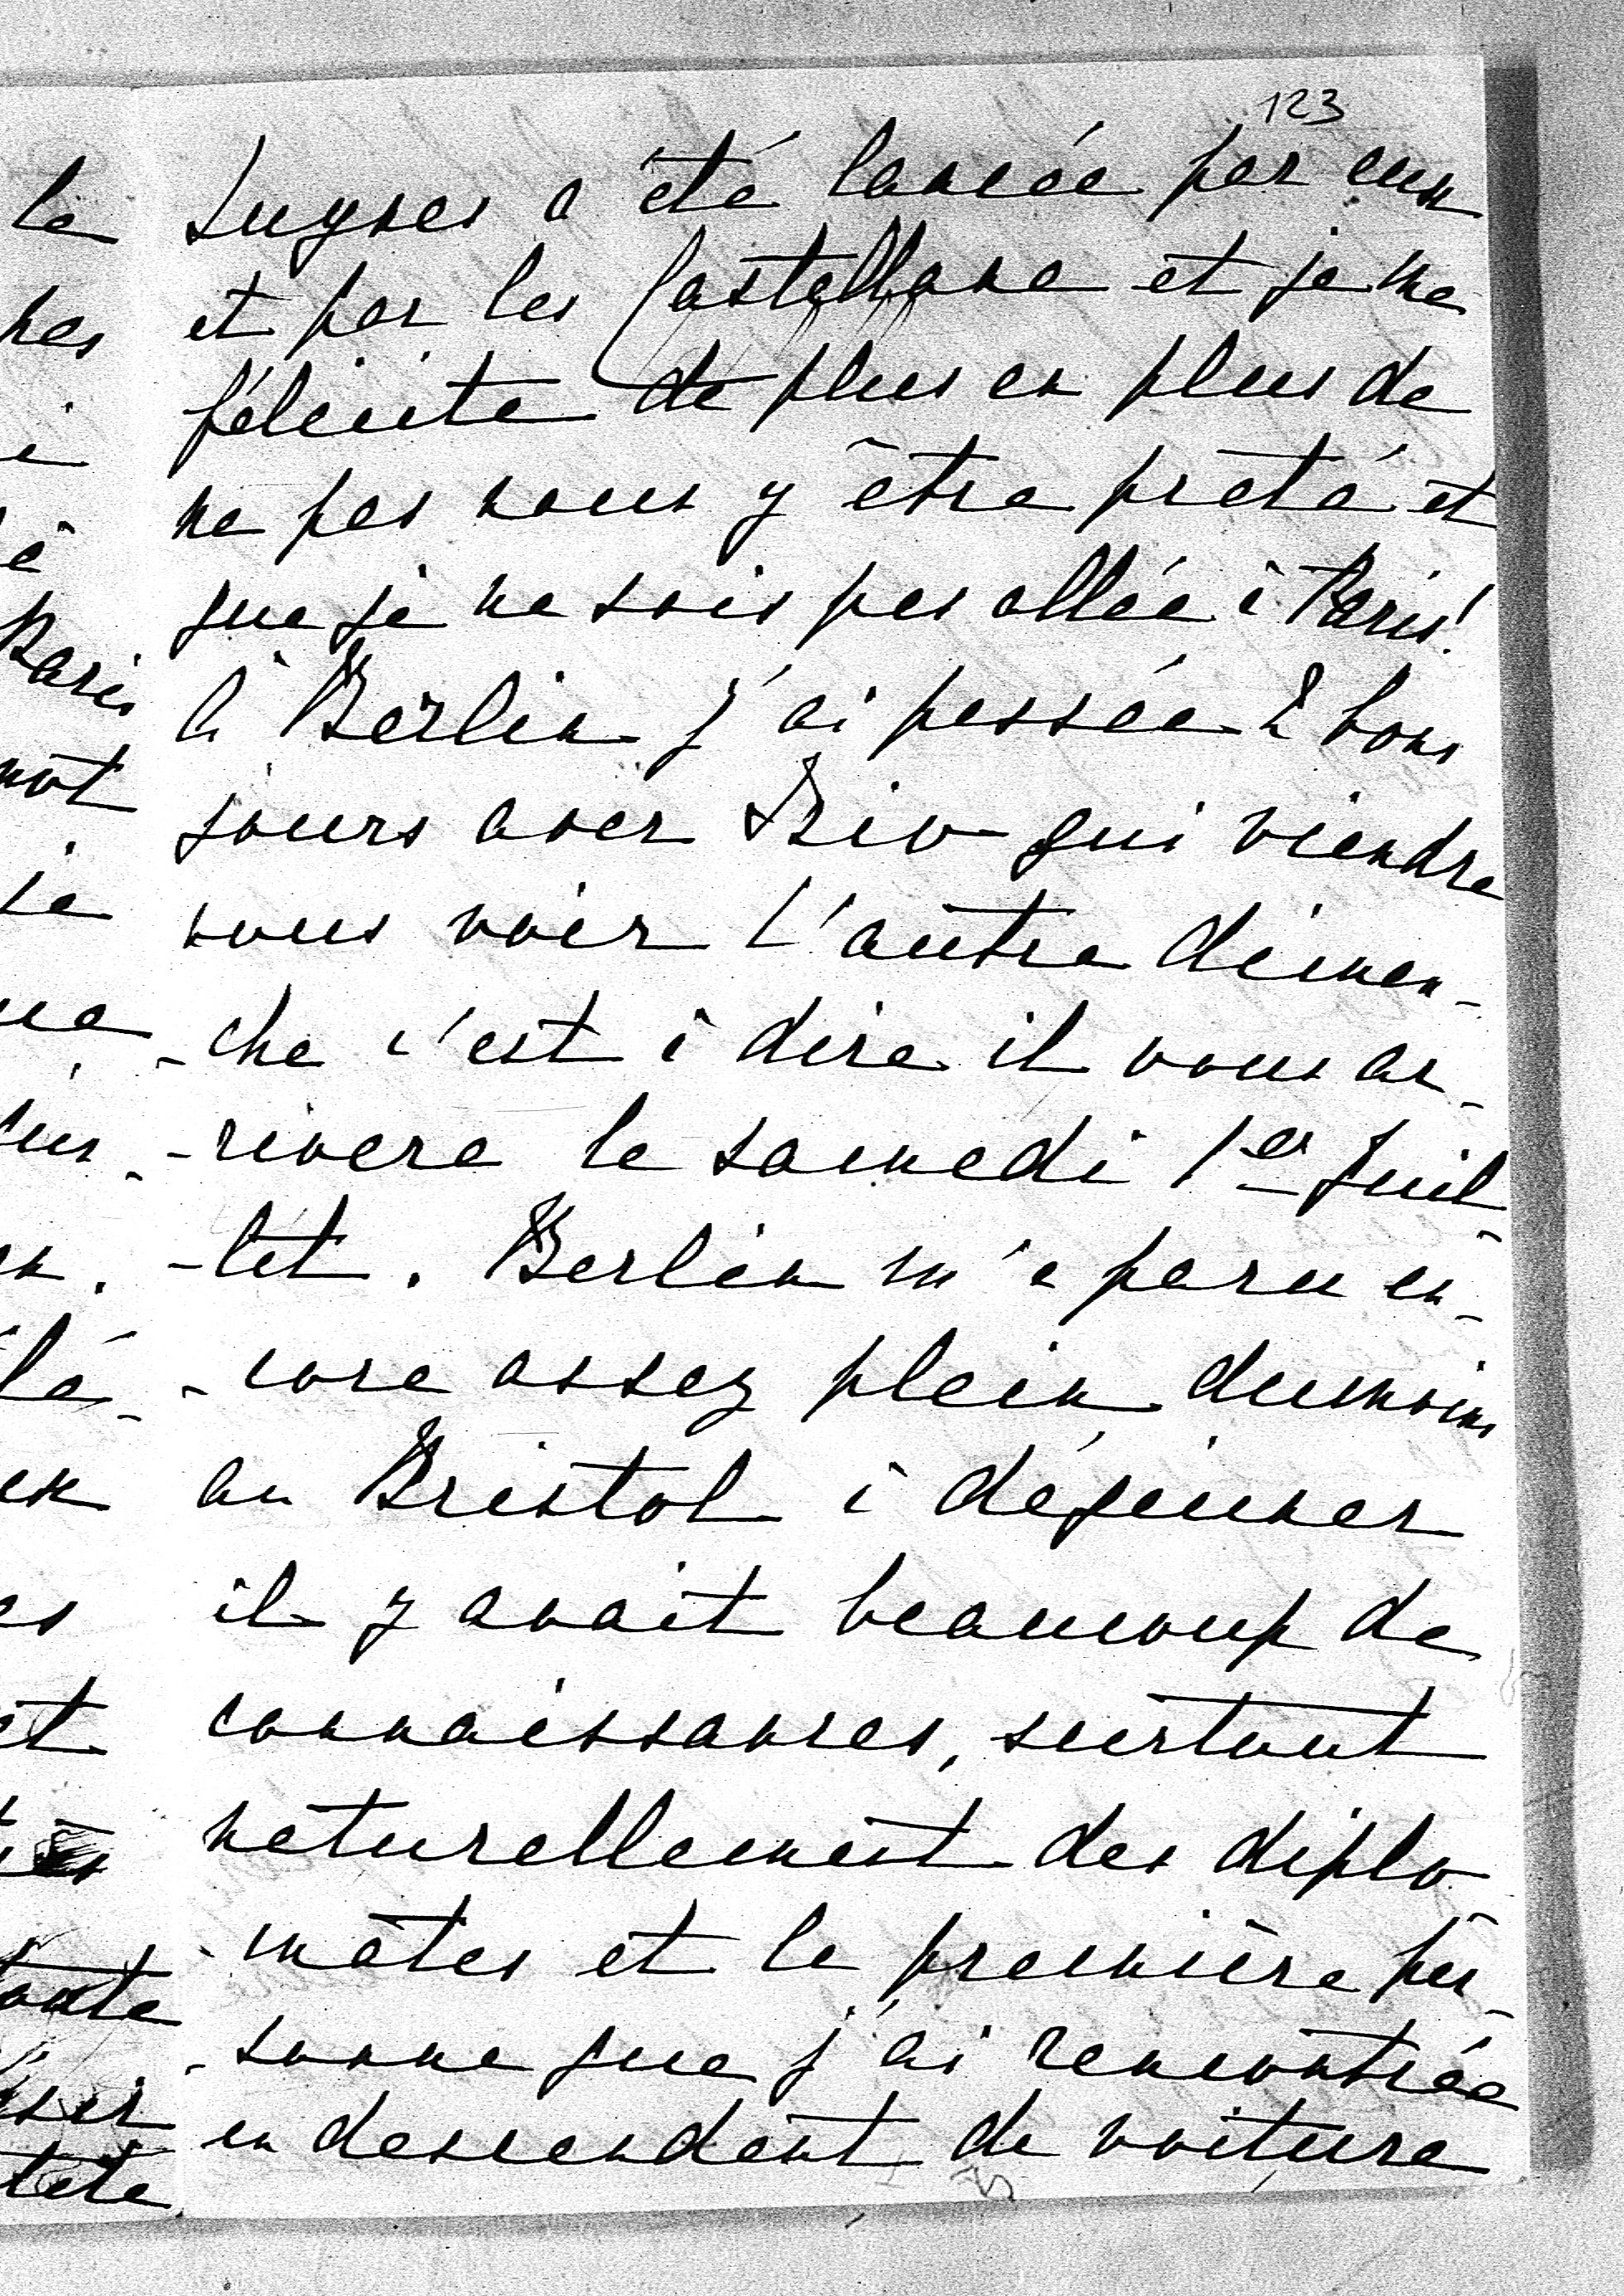 123
Luynes a été lancée par eux
et par les Castellane et je me
félicite de plus en plus de
ne pas nous y être prêté et
que je ne sois pas allée à Paris!
À Berlin j'ai passée 2 bons
jours avec qui viendra
vous voir l'autre diman-
-che c'est à dire il vous ar-
-rivera le samedi 1er Juil-
-let. Berlin m'a paru en-
-core assez plein, dumoins
au Bristol à déjeuner
il y avait beaucoup de
connaissances, surtout
naturellement des diplo
-mates et la première per-
-sonne que j'ai rencontrée
en descendant de voiture